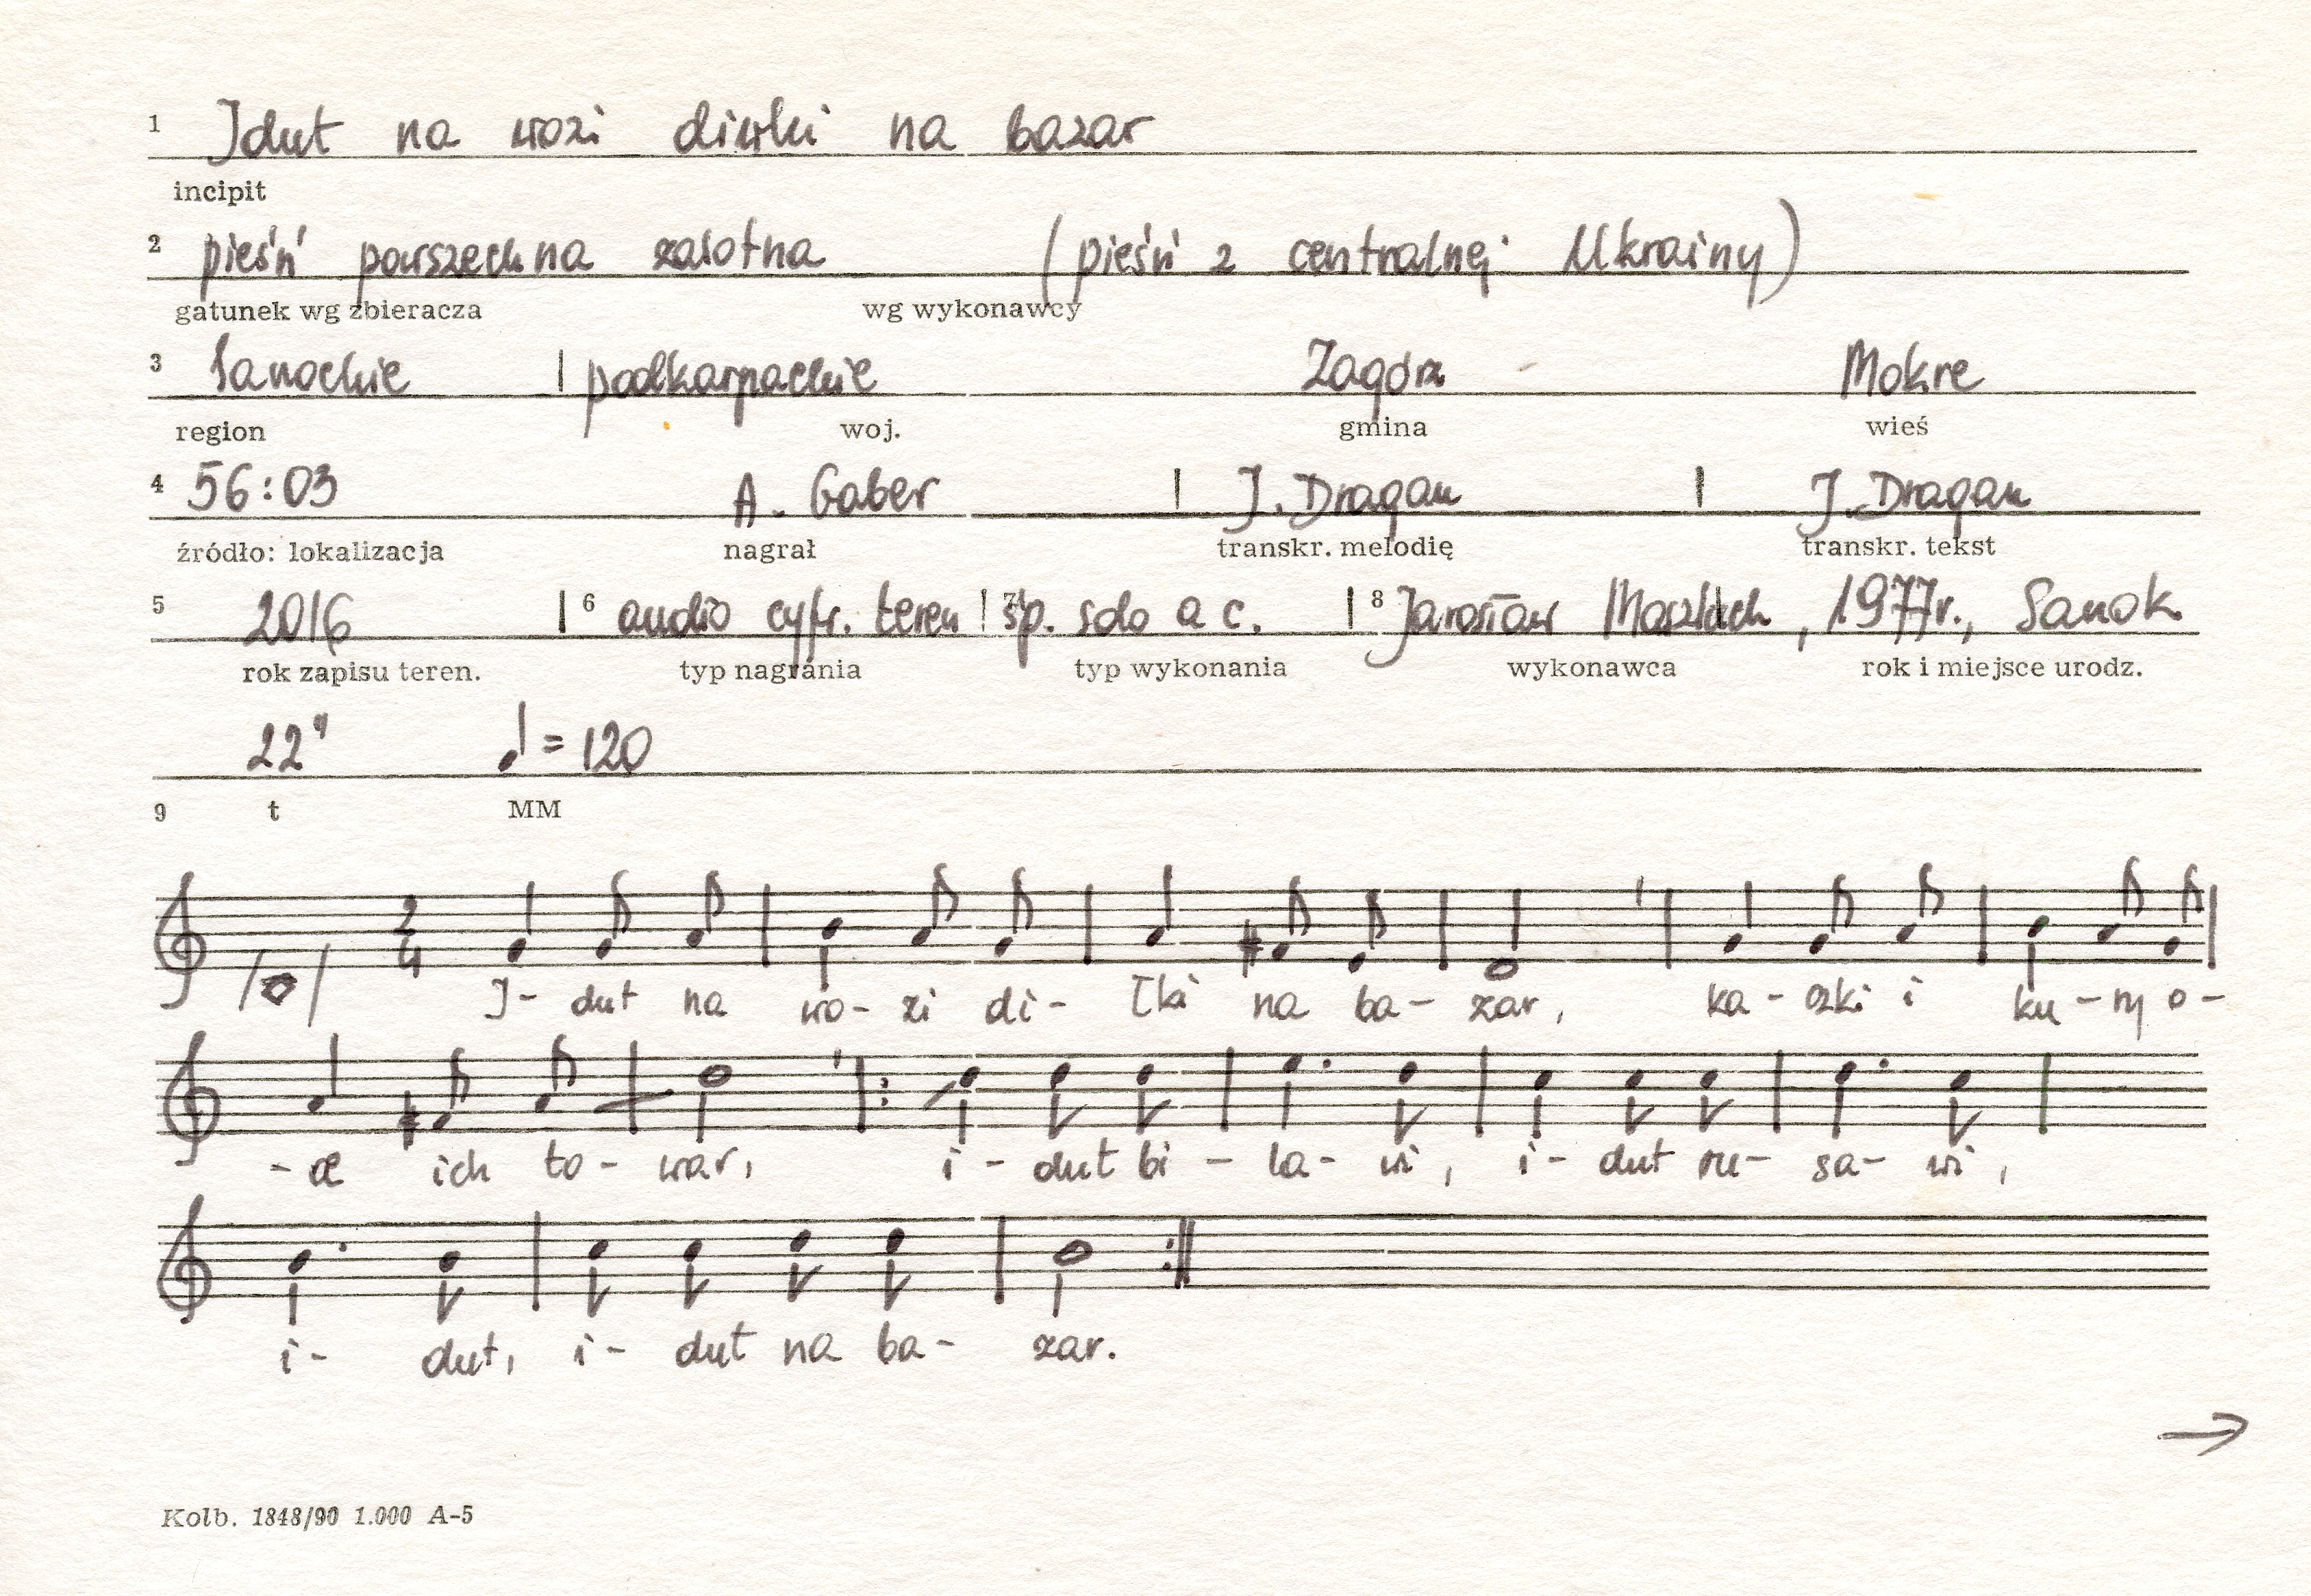 1 Idut na wozi diwki na bazar
incipit
2 pieśń powszechna zalotna (pieśń z centralnej Ukrainy)
gatunek wg zbieracza wg wykonawcy
3 Sanockie | podkarpackie Zagórz Mokre
region woj. gmina wieś
4 56:03 A. Gaber | J. Dragan | J. Dragan
źródło: lokalizacja nagrał transkr. melodię transkr. tekst
5 2016 | 6 audio cyfr. teren | 7 śp. solo a c. | 8 Jarosław , 1977r., Sanok
rok zapisu teren. typ nagrania typ wykonania wykonawca rok i miejsce urodz.
22" ♩ = 120
9 t MM
2/4
I- dut na wo- zi di- łki na ba- zar, ka- czki i ku- ry o-
-ce ich to- war, i- dut bi- la- wi, i- dut ru- sa- wi,
i- dut, i- dut na ba- zar.
→
Kolb. 1848/90 1.000 A-5